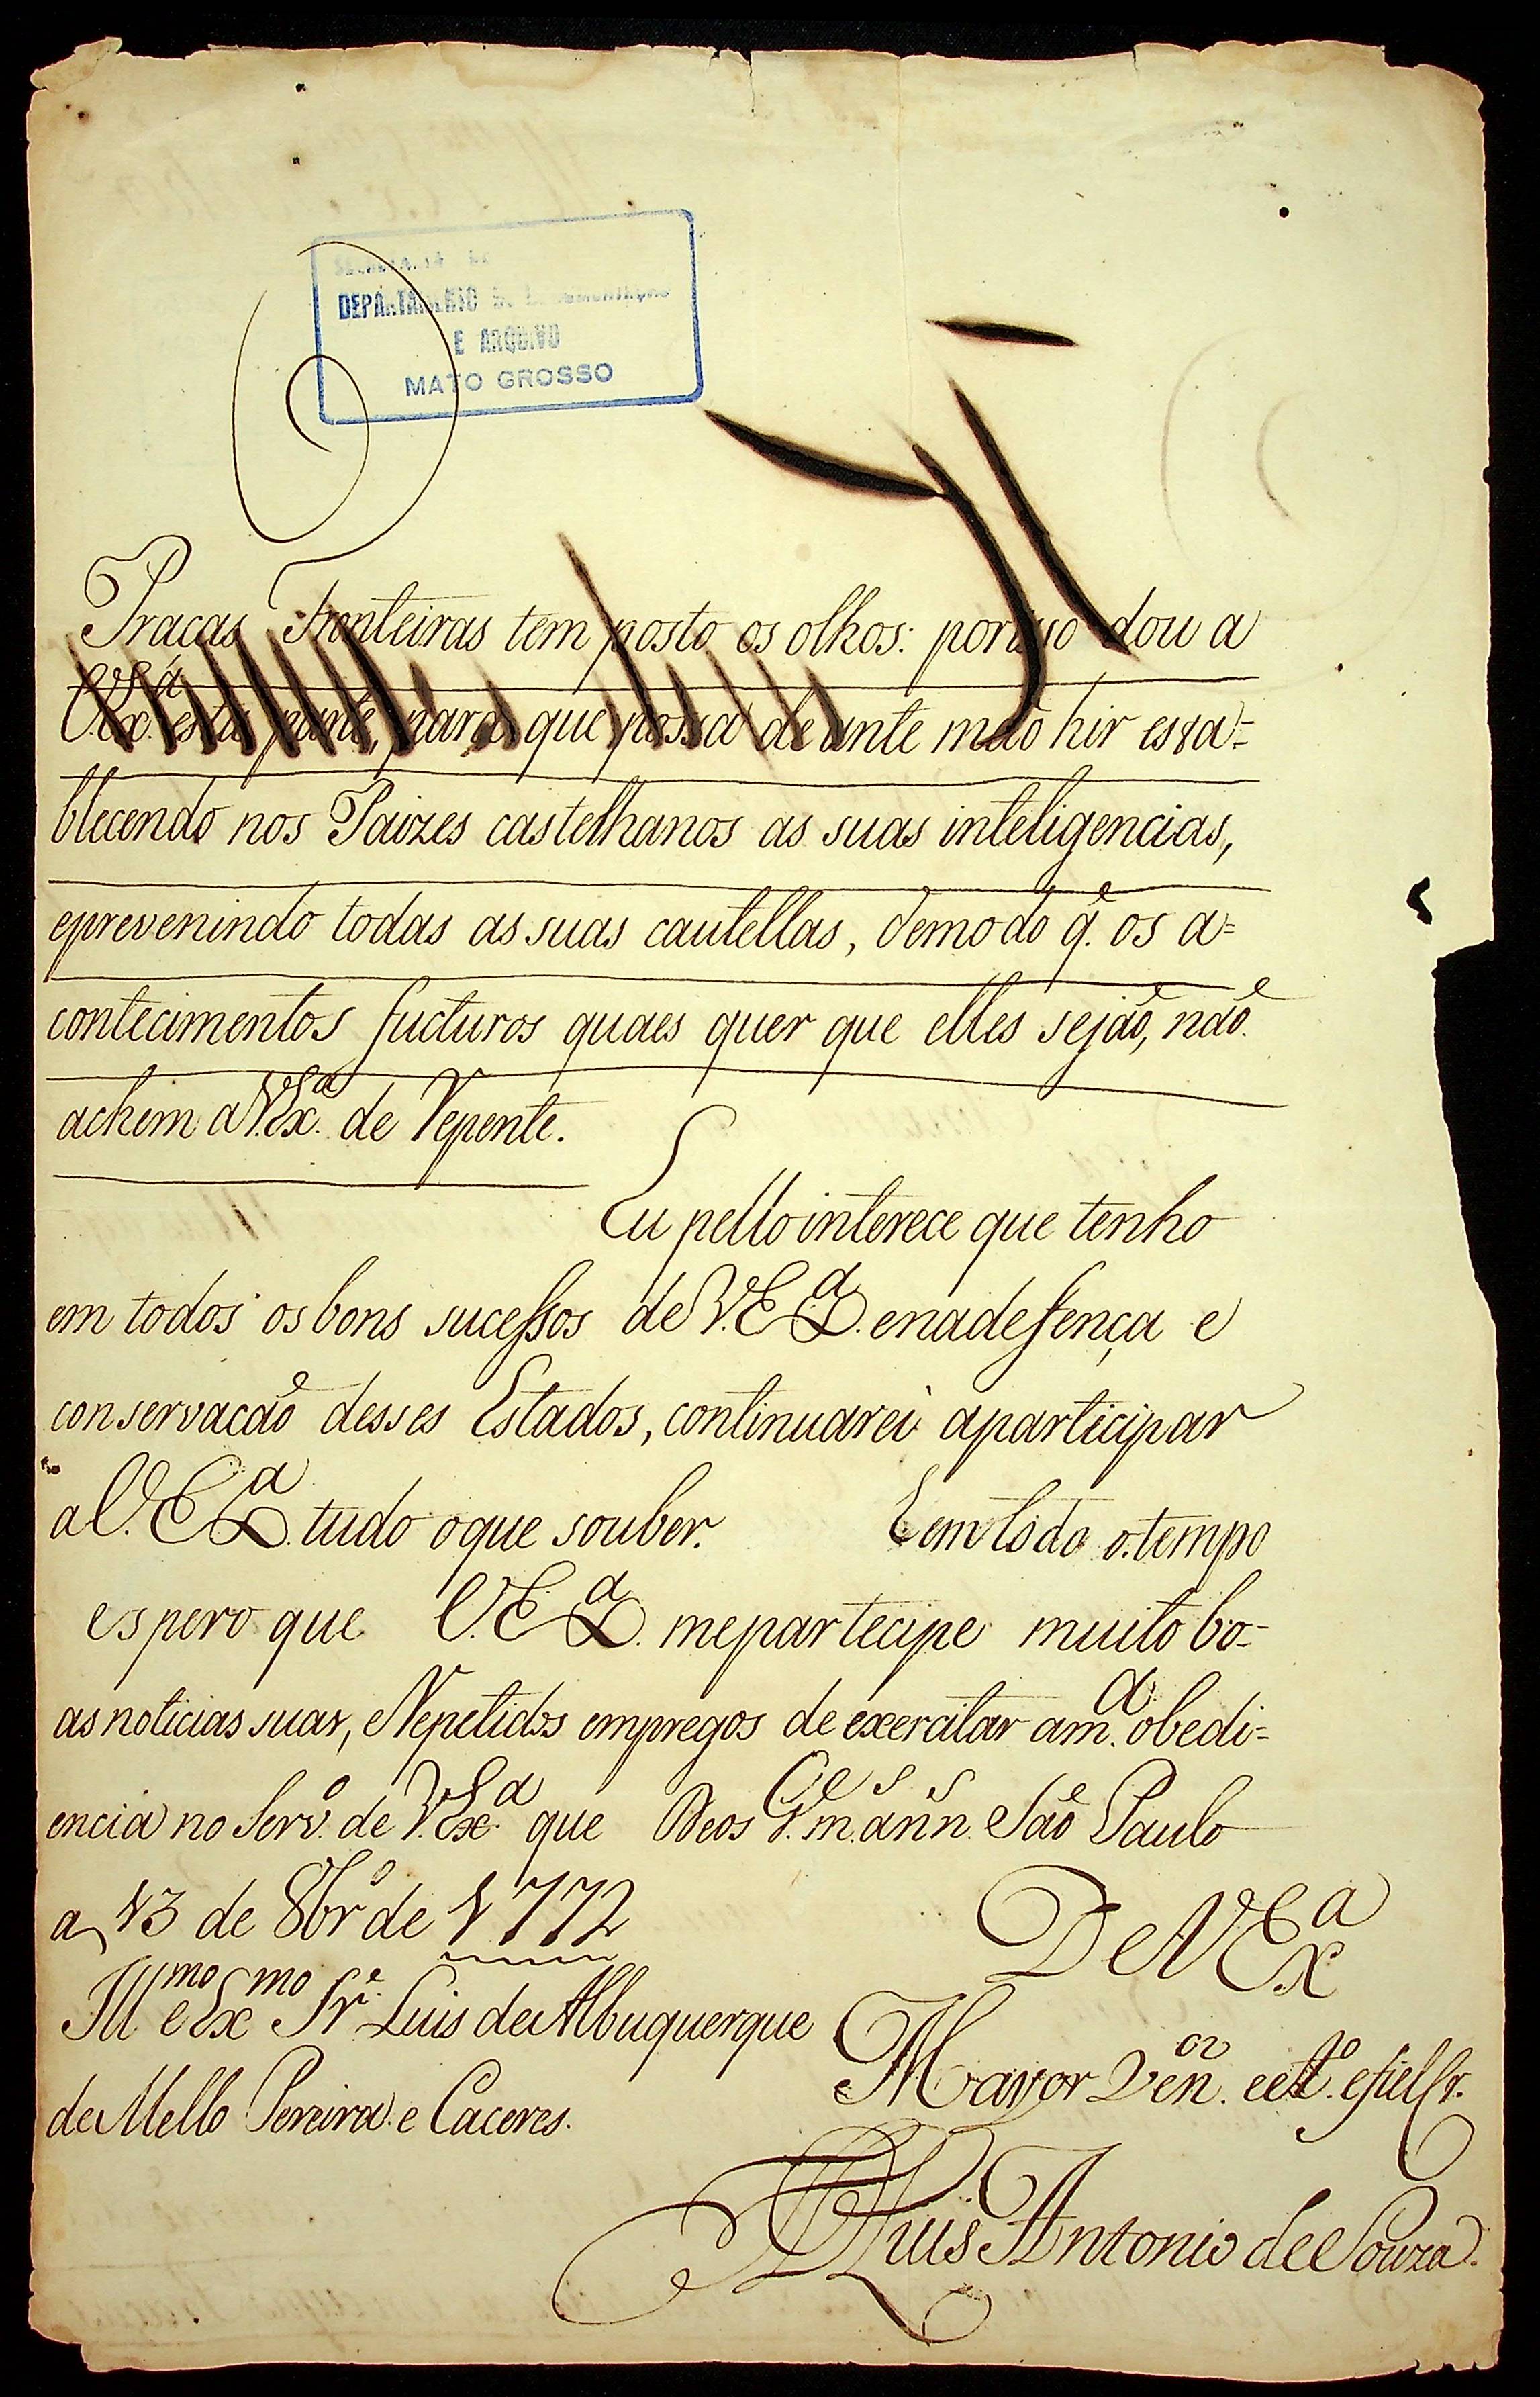 DEPARTAMENTO DE DOCUMENTAÇÃO
E ARQUIVO
MATO GROSSO
Praças Fronteiras tem posto os olhos: por iso dou a
V.Ex.ª esta parte, para que possa de ante maõ hir esta=
blecendo nos Paizes castelhanos as suas inteligencias,
eprevenindo todas as suas cautellas, demodo q.̃ os a=
contecimentos fucturos quaes quer que elles sejaõ, naõ
achem a V.Ex.ª de Repente.
Eu pello interece que tenho
em todos os bons sucessos de V.Ex.ª enadefença e
conservacaõ desses Estados, continuarei aparticipar
a V.Ex.ª tudo oque souber. Eem todo o tempo
espero que V.Ex.ª mepartecipe muito bo=
as noticias suas, eRepetidos empregos de exercitar a m.ª obedi=
encia no Serv.º de V.Ex.ª que Deos G.de m.s ann.s Saõ Paulo
a 13 de 8br.º de 1772
Ill.mo e Ex.mo Sr. Luis de Albuquerque
de Mello Pereira e Caceres.
De V Ex.ª
Mayor Ven.or e at.º e fiel Cr.
Luis Antonio de Souza.